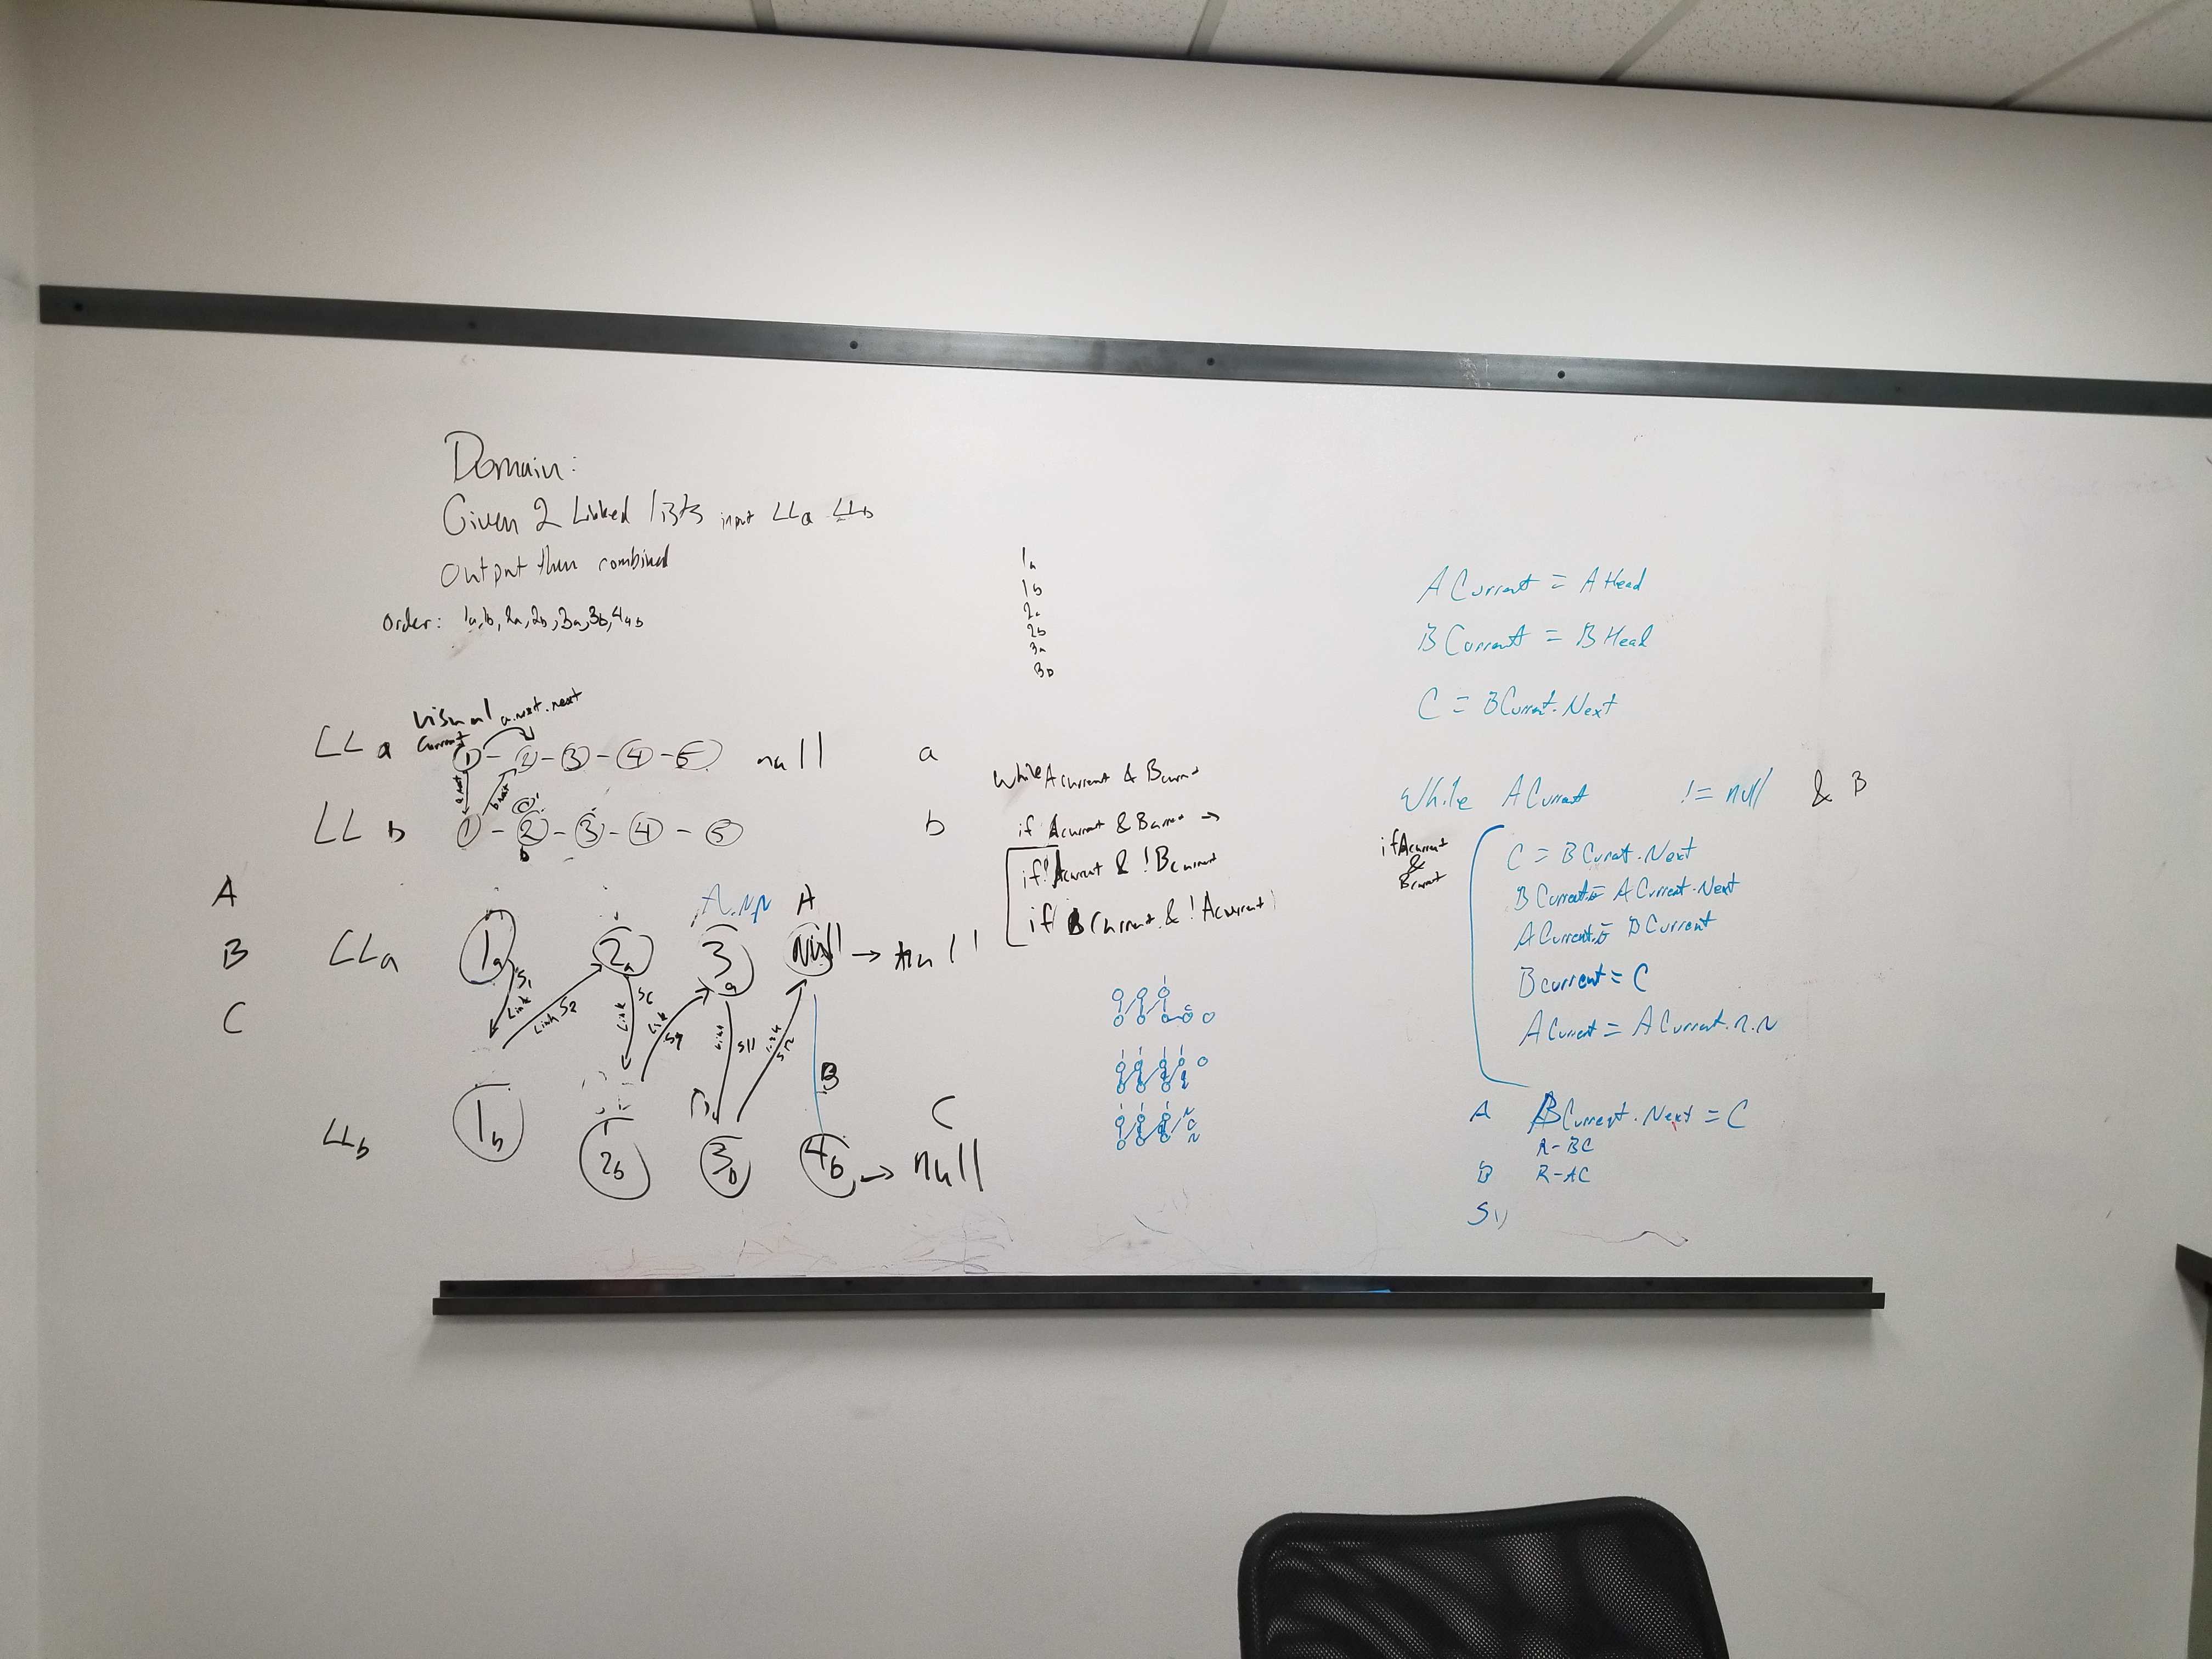 Domain:
Given 2 Linked lists input LLa LLb
Output then combined
Order: 1a, 1b, 2a, 2b, 3a, 3b, 4ab
1a
1b
2a
2b
3a
3b
Visual a.next.next
Current
LLa 1 - 2 - 3 - 4 - 5 null a
a.next b.next
LLb 1 - 2 - 3 - 4 - 5 b
b
A
B
C
A.n.n A
LLa 1a 2a 3a Null → null
S1 Link
Link S2
S6 Link
Link S9
Link S11
Link
B
C
LLb 1b 2b 3b 4b → null
While ACurrent & BCurrent
if ACurrent & BCurrent →
if !ACurrent & !BCurrent
if BCurrent & !ACurrent
ACurrent = AHead
BCurrent = BHead
C = BCurrent.Next
While ACurrent != null & B
if ACurrent
&
BCurrent
C = BCurrent.Next
BCurrent = ACurrent.Next
ACurrent = BCurrent
Bcurrent = C
ACurrent = ACurrent.n.n
A BCurrent.Next = C
R-BC
B R-AC